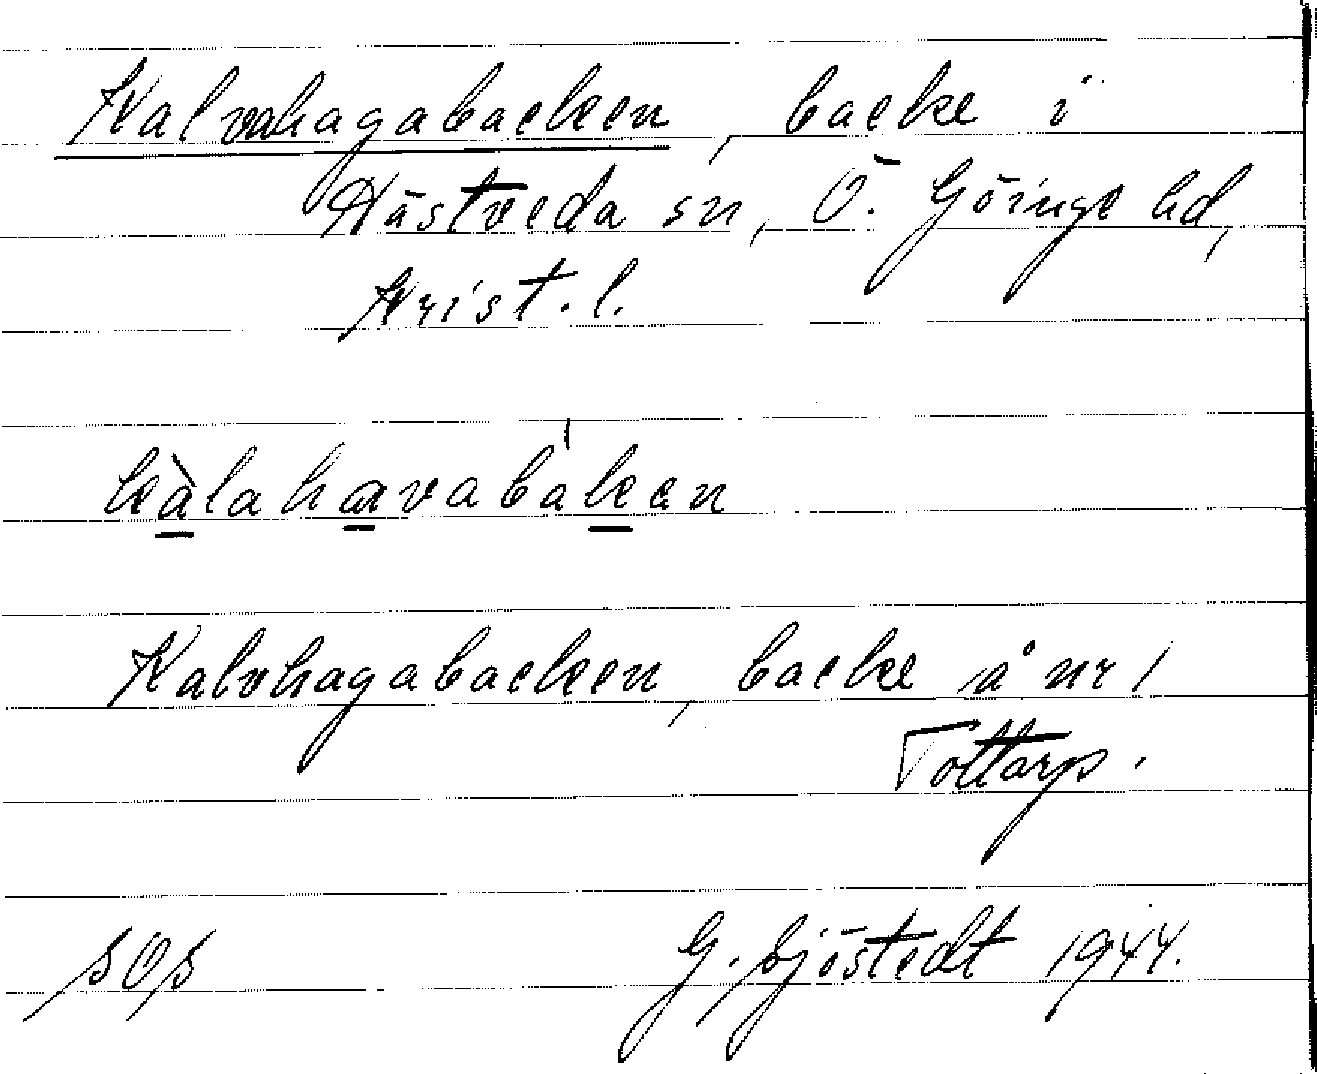 Kalvhagabacken, backe i
Hästveda sn, Ö. Göinge hd,
Krist. l.
kàlahavabákan
Kalvhagabacken, backe å nr 1
Tottarp.
SOS G. Sjöstedt 1944.